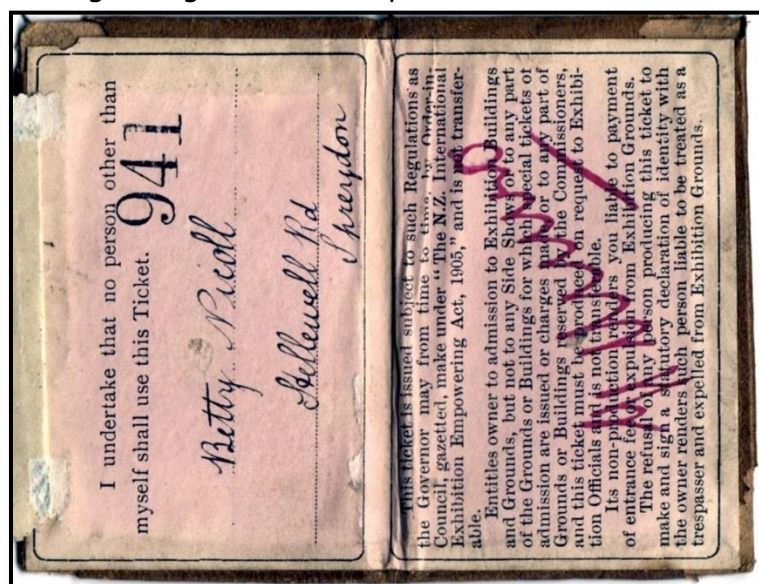 I undertake that no person other than
myself shall use this Ticket. 941
Betty Nicoll
Hellewell Rd
Spreydon
This ticket is issued subject to such Regulations as
the Governor may from time to time, by Order-in-
Council, gazetted, make under "The N.Z. International
Exhibition Empowering Act, 1905," and is not transfer-
able.
Entitles owner to admission to Exhibition Buildings
and Grounds, but not to any Side Shows or to any part
of the Grounds or Buildings for which special tickets of
admission are issued or charges made, or to any part of
Grounds or Buildings reserved by the Commissioners,
and this ticket must be produced on request to Exhibi-
tion Officials and is not transferable.
Its non-production renders you liable to payment
of entrance fee or expulsion from Exhibition Grounds.
The refusal of any person producing this ticket to
make and sign a statutory declaration of identity with
the owner renders such person liable to be treated as a
trespasser and expelled from Exhibition Grounds.